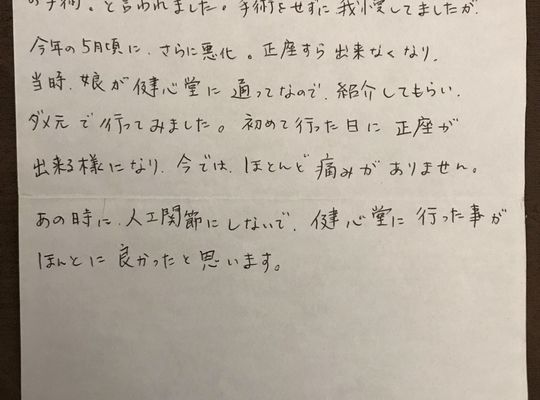 の手術。と言われました。手術をせずに我慢してましたが、
今年の5月頃に、さらに悪化。正座すら出来なくなり、
当時、娘が健心堂に通ってなので、紹介してもらい、
ダメ元で行ってみました。初めて行った日に正座が
出来る様になり、今では、ほとんど痛みがありません。
あの時に、人工関節にしないで、健心堂に行った事が
ほんとに良かったと思います。